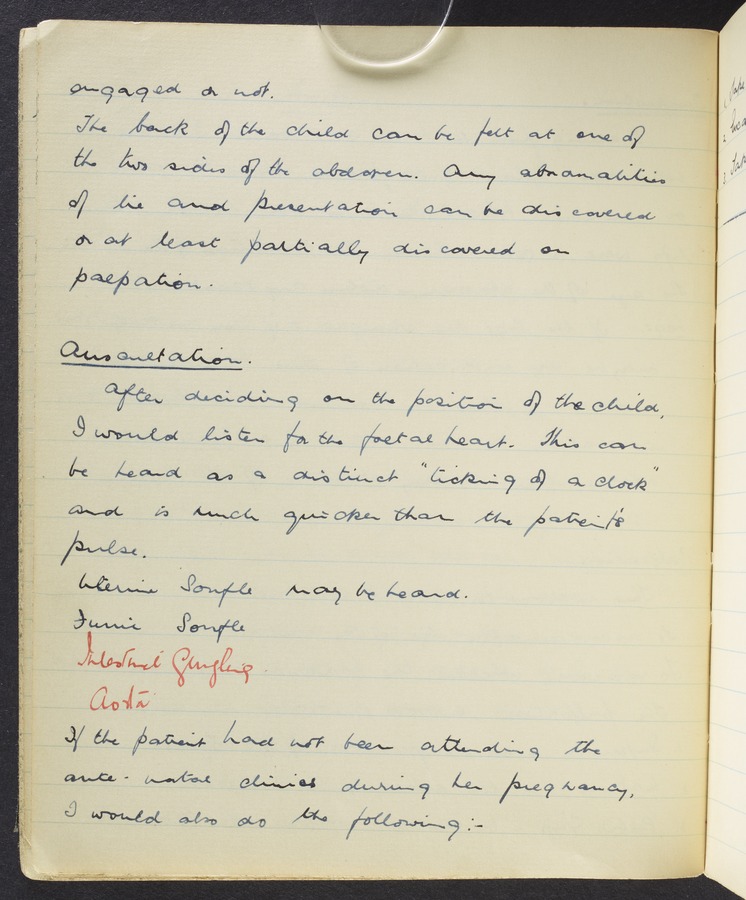 engaged or not.
The back of the child can be felt at one of
the two sides of the abdomen. Any abnormalities
of lie and presentation can be discovered
or at least partially discovered on
palpation.
Auscultation.
After deciding on the position of the child,
I would listen for the foetal heart. This can
be heard as a distinct "ticking of a clock"
and is much quicker than the patient's
pulse.
Uterine Soufle may be heard.
Funic Soufle
Intestinal Gurgling
Aorta
If the patient had not been attending the
ante-natal clinics during her pregnancy,
I would also do the following:-